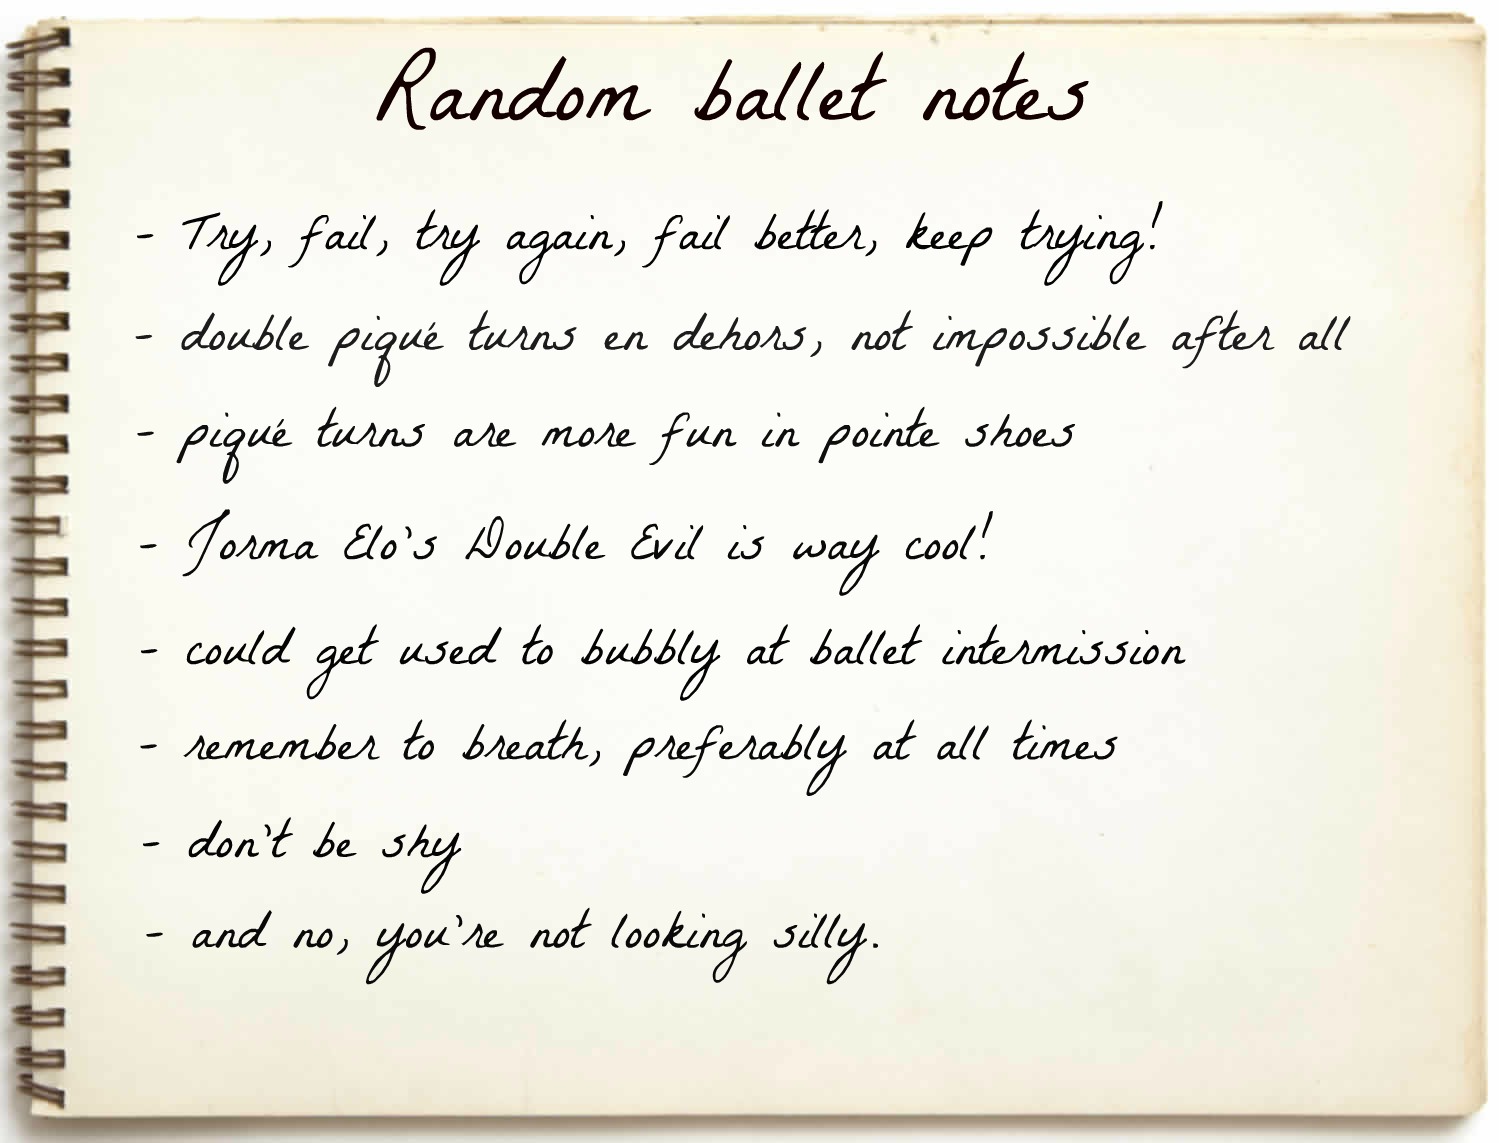 Random ballet notes
- Try, fail, try again, fail better, keep trying!
- double piqué turns en dehors, not impossible after all
- piqué turns are more fun in pointe shoes
- Jorma Elo's Double Evil is way cool!
- could get used to bubbly at ballet intermission
- remember to breath, preferably at all times
- don't be shy
- and no, you're not looking silly.